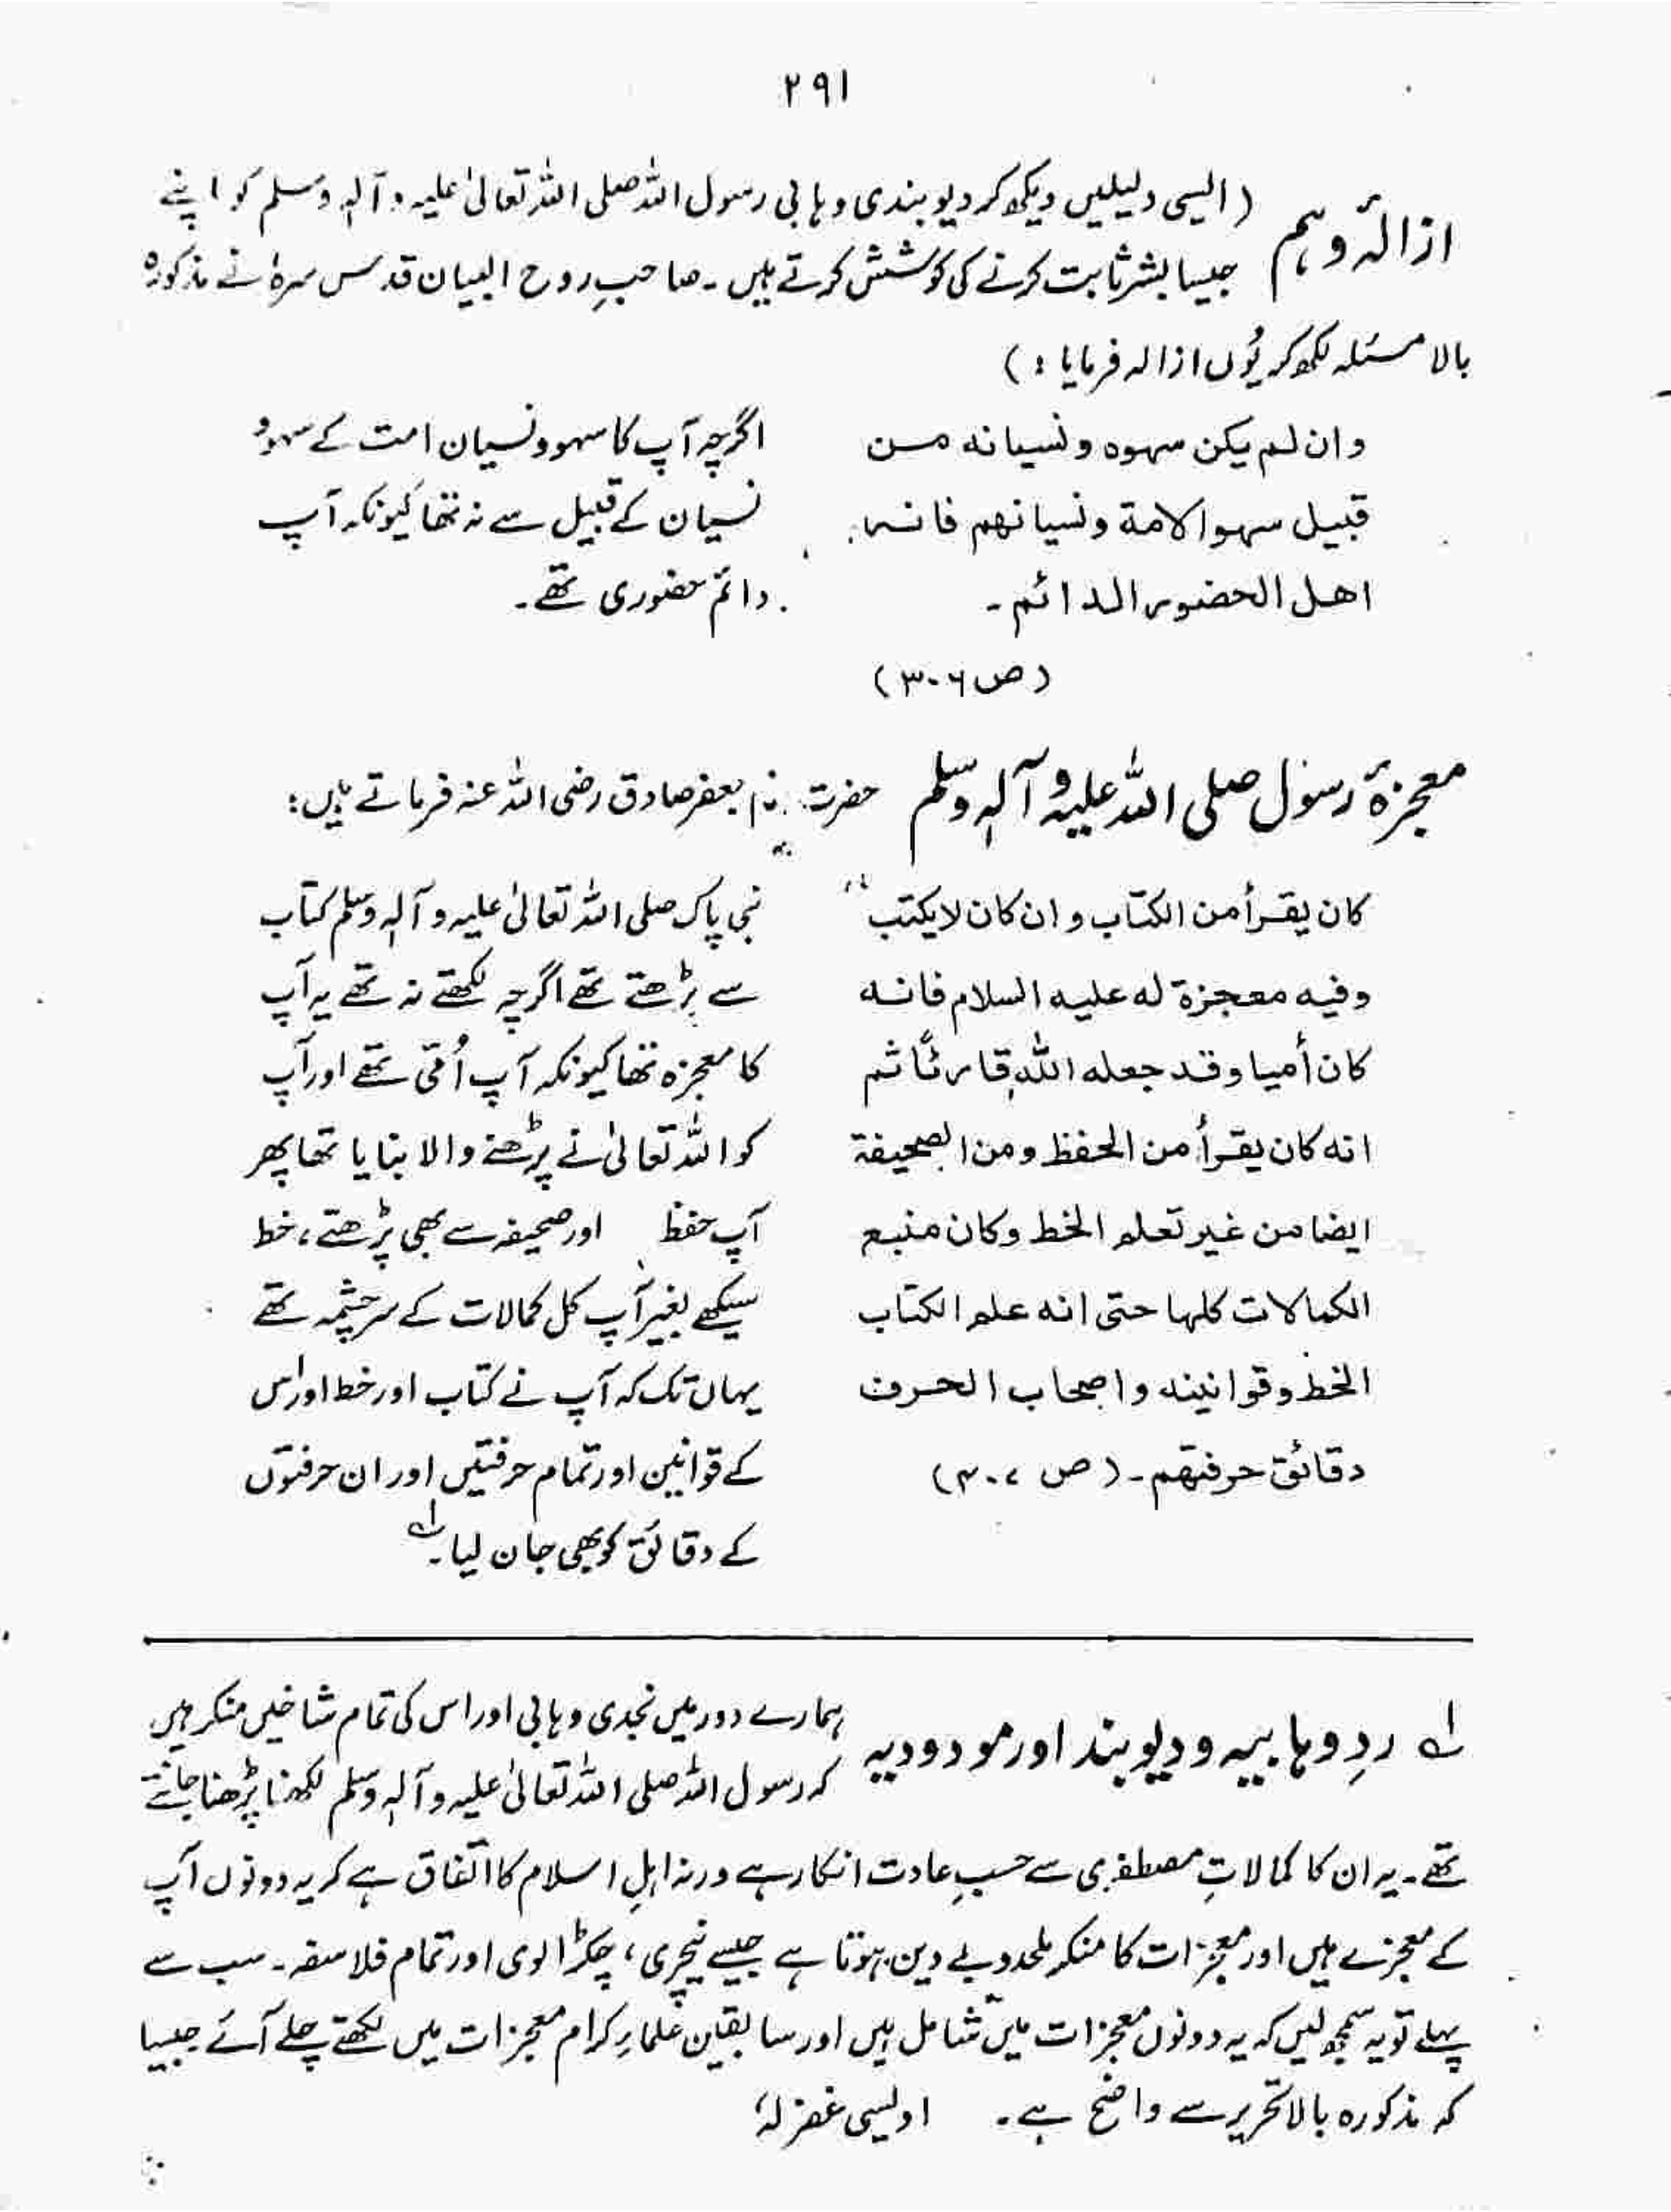 ۲۹۱
ازالۂ وہم (ایسی دلیلیں دیکھ کر دیوبندی وہابی رسول اللہ صلی اللہ تعالیٰ علیہ وآلہٖ وسلم کو اپنے
جیسا بشر ثابت کرنے کی کوشش کرتے ہیں۔ صاحبِ روح البیان قدس سرہٗ نے مذکورہ
بالا مسئلہ لکھ کر یُوں ازالہ فرمایا:)
وان لم یکن سہوہ ونسیانہ من
قبیل سہوالامة ونسیانہم فانہ
اھل الحضور الدائم۔
(ص ۳۰۶)
اگرچہ آپ کا سہو ونسیان امت کے سہو و
نسیان کے قبیل سے نہ تھا کیونکہ آپ
دائم حضوری تھے۔
معجزۂ رسول صلی اللہ علیہ وآلہٖ وسلم حضرت امام جعفر صادق رضی اللہ عنہ فرماتے ہیں:
کان یقرأ من الکتاب وان کان لا یکتب
وفیہ معجزة لہ علیہ السلام فانہ
کان أمیا وقد جعلہ اللہ قارئًا ثم
انہ کان یقرأ من الحفظ ومن الصحیفة
ایضا من غیر تعلم الخط وکان منبع
الکمالات کلہا حتی انہ علم الکتاب
الخط وقوانینہ واصحاب الحرف
دقائق حرفتہم۔ (ص ۳۰۷)
نبی پاک صلی اللہ تعالیٰ علیہ وآلہٖ وسلم کتاب
سے پڑھتے تھے اگرچہ لکھتے نہ تھے یہ آپ
کا معجزہ تھا کیونکہ آپ اُمّی تھے اور آپ
کو اللہ تعالیٰ نے پڑھنے والا بنایا تھا پھر
آپ حفظ اور صحیفہ سے بھی پڑھتے، خط
سیکھے بغیر آپ کل کمالات کے سرچشمہ تھے
یہاں تک کہ آپ نے کتاب اور خط اور اس
کے قوانین اور تمام حرفتیں اور ان حرفتوں
کے دقائق کو بھی جان لیا۔ لے
لے ردِ وہابیہ و دیوبند اور مودودیہ ہمارے دور میں نجدی وہابی اور اس کی تمام شاخیں منکر ہیں
کہ رسول اللہ صلی اللہ تعالیٰ علیہ وآلہٖ وسلم لکھنا پڑھنا جانتے
تھے۔ یہ ان کا کمالاتِ مصطفوی سے حسبِ عادت انکار ہے ورنہ اہلِ اسلام کا اتفاق ہے کہ یہ دونوں آپ
کے معجزے ہیں اور معجزات کا منکر ملحد و بے دین ہوتا ہے جیسے نیچری، چکڑالوی اور تمام فلاسفہ۔ سب سے
پہلے تو یہ سمجھ لیں کہ یہ دونوں معجزات میں شامل ہیں اور سابقین علماءِ کرام معجزات میں لکھتے چلے آئے جیسا
کہ مذکورہ بالا تحریر سے واضح ہے۔ اویسی غفرلہٗ